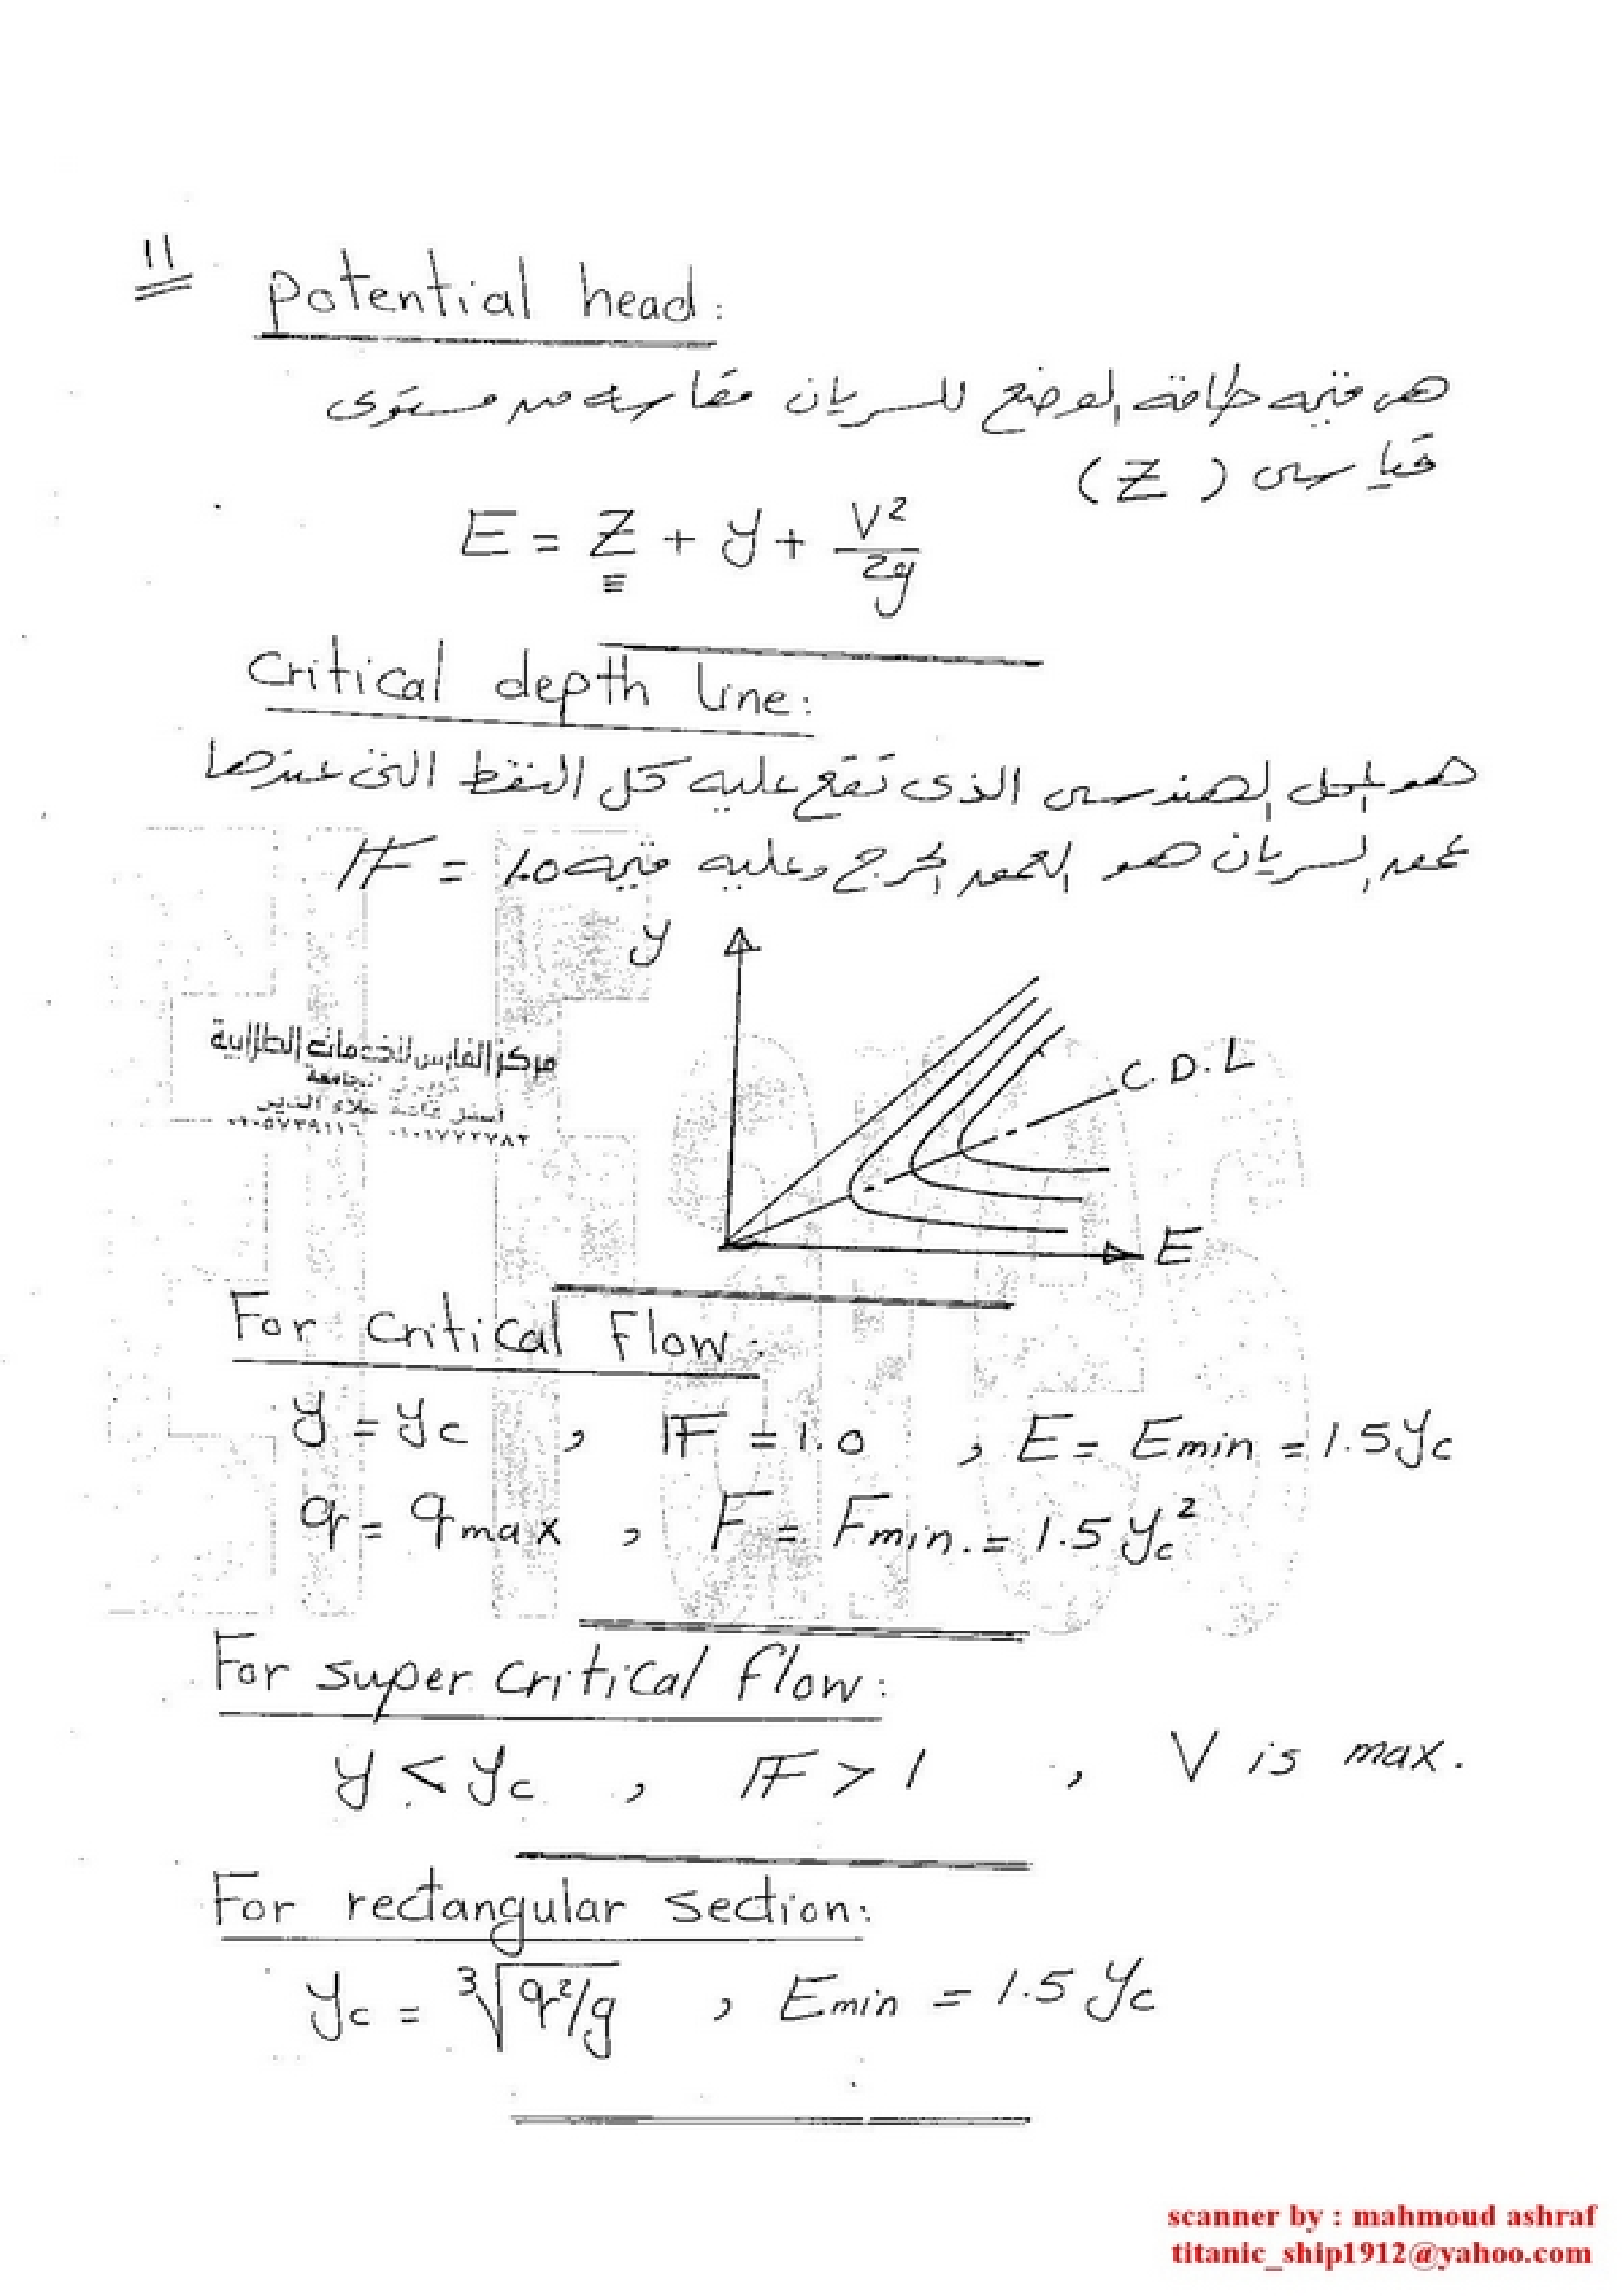 11
Potential head:
هى قيمه طاقة الوضع للسريان مقاسه من مستوى
قياسى (Z)
E = Z + y + V²/2g
Critical depth line:
هو المحل الهندسى الذى تقع عليه كل النقط التى عندها
عمق السريان هو العمق الحرج وعليه قيمه F = 1.0
y
مركز الفارس للخدمات الطلابية
C.D.L
E
For Critical Flow:
y = yc , F = 1.0 , E = Emin = 1.5 yc
q = qmax , F = Fmin. = 1.5 yc²
For super critical flow:
y < yc , F > 1 , V is max.
For rectangular section:
yc = ³√q²/g , Emin = 1.5 yc
scanner by : mahmoud ashraf
titanic_ship1912@yahoo.com